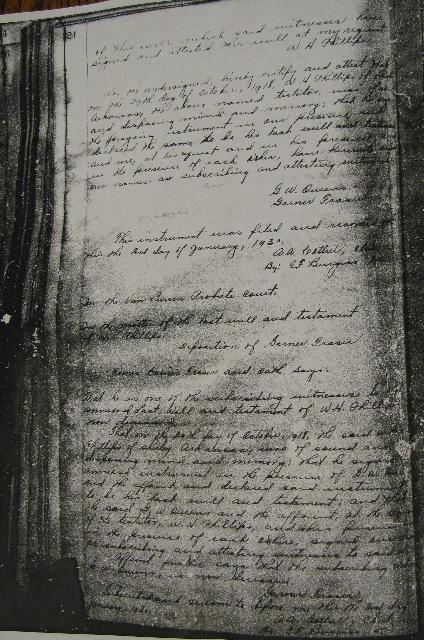 21
of this will, which said witnesses have
signed and attested this will at my request
W. H. Phillips
We, the undersigned, hereby certify and attest that
on the 29th day of October, 1918, W. H. Phillips of
Arkansas, the above named testator, was
and disposing mind and memory; that he
the foregoing instrument in our presence
declared the same to be his last will and
and we, at his request and in his presence
in the presence of each other, have hereunto
our names as subscribing and attesting witnesses
G. W. Owens
Garner Fraser
This instrument was filed and recorded
this the 2nd day of January, 193
By:
In the Van Buren Probate Court.
In the matter of the last will and testament
of W. H. Phillips.
Deposition of Garner Fraser
Comes Garner Fraser and oath, says:
That he is one of the subscribing witnesses to
annexed last will and testament of W. H. Phillips
now deceased.
That on the 29th day of October, 1918, the said
Phillips of Arkansas, was of sound and
disposing mind and memory; that he signed
annexed instrument in the presence of G. W.
and the affiant and declared said instrument
to be his last will and testament, and that
the said G. W. Owens and the affiant, at the
of the testator, W. H. Phillips, and in the presence
in the presence of each other, signed
subscribing and attesting witnesses to said
Affiant further says that the subscribing
is now deceased.
Garner Fraser
Subscribed and sworn to before me this the 2nd day